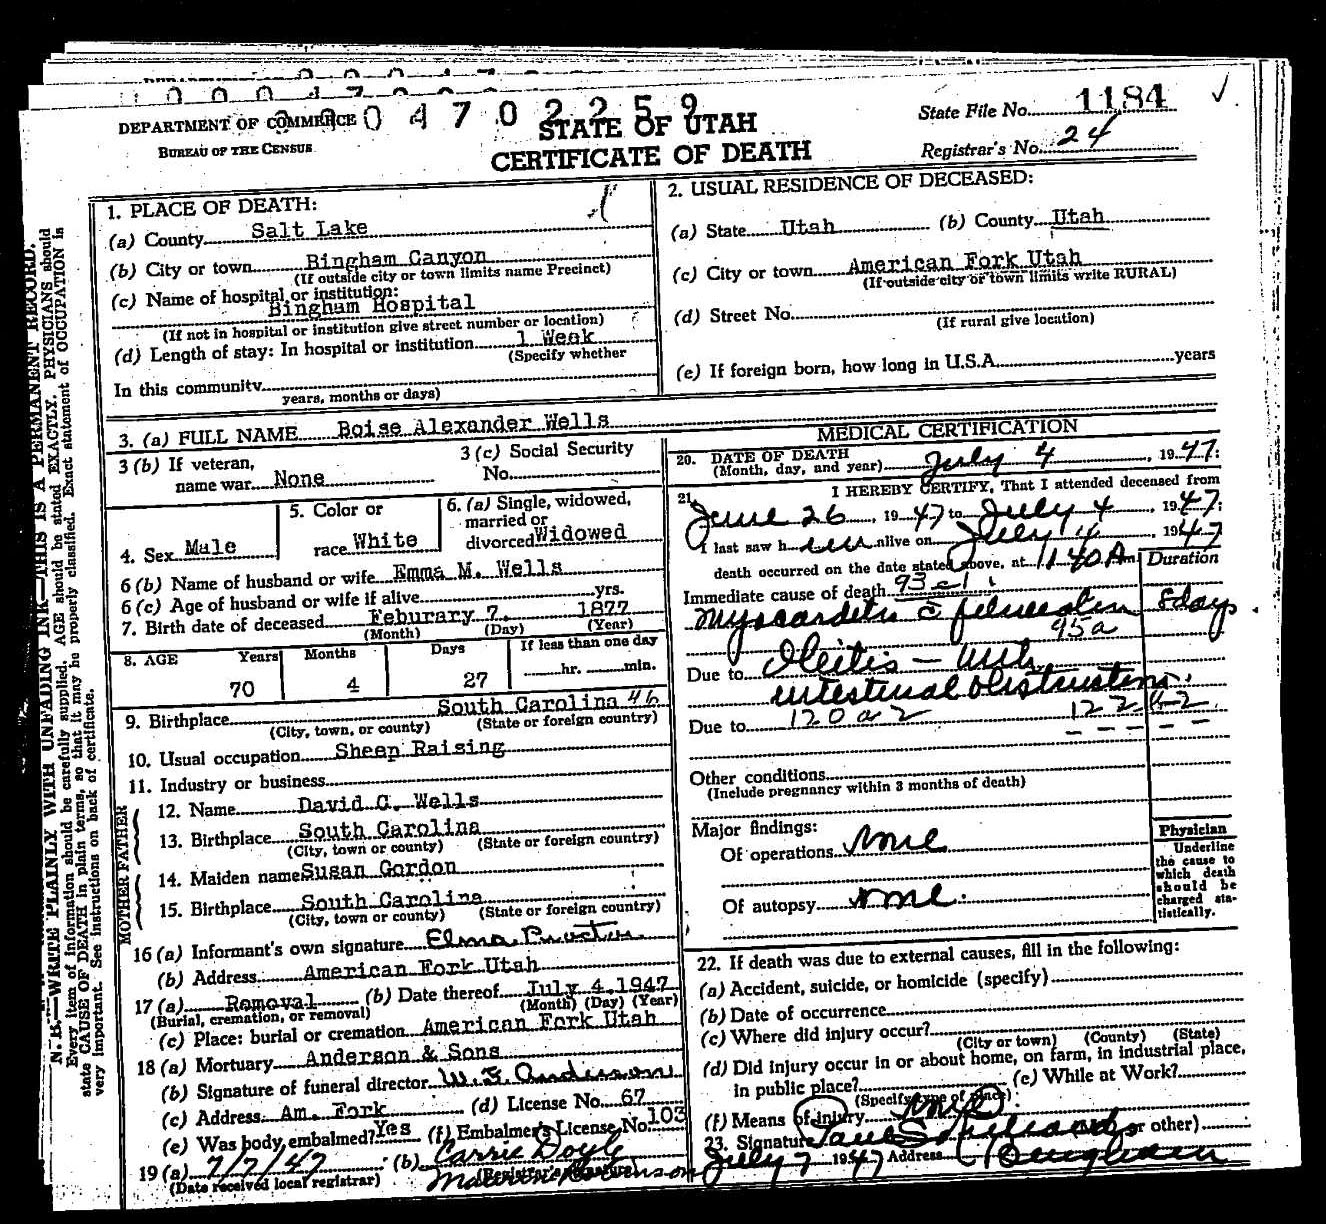 0004702259
DEPARTMENT OF COMMERCE
BUREAU OF THE CENSUS
STATE OF UTAH
CERTIFICATE OF DEATH
State File No. 1184
Registrar's No. 24
1. PLACE OF DEATH:
(a) County Salt Lake
(b) City or town Bingham Canyon
(If outside city or town limits name Precinct)
(c) Name of hospital or institution:
Bingham Hospital
(If not in hospital or institution give street number or location)
(d) Length of stay: In hospital or institution 1 Week
(Specify whether
In this community
years, months or days)
2. USUAL RESIDENCE OF DECEASED:
(a) State Utah (b) County Utah
(c) City or town American Fork Utah
(If outside city or town limits write RURAL)
(d) Street No.
(If rural give location)
(e) If foreign born, how long in U.S.A. years
3. (a) FULL NAME Boise Alexander Wells
3 (b) If veteran,
name war None
3 (c) Social Security
No.
4. Sex Male
5. Color or
race White
6. (a) Single, widowed,
married or
divorced Widowed
6 (b) Name of husband or wife Emma M. Wells
6 (c) Age of husband or wife if alive yrs.
7. Birth date of deceased Feburary 7, 1877
(Month) (Day) (Year)
8. AGE Years Months Days If less than one day
70 4 27 hr. min.
9. Birthplace South Carolina 46
(City, town, or county) (State or foreign country)
10. Usual occupation Sheep Raising
11. Industry or business
FATHER
12. Name David C. Wells
13. Birthplace South Carolina
(City, town or county) (State or foreign country)
MOTHER
14. Maiden name Susan Gordon
15. Birthplace South Carolina
(City, town or county) (State or foreign country)
16 (a) Informant's own signature Elma Proctor
(b) Address American Fork Utah
17 (a) Removal (b) Date thereof July 4, 1947
(Burial, cremation, or removal) (Month) (Day) (Year)
(c) Place: burial or cremation American Fork Utah
18 (a) Mortuary Anderson & Sons
(b) Signature of funeral director W. E. Anderson
(c) Address Am. Fork (d) License No. 67
(e) Was body embalmed? Yes (f) Embalmer's License No. 103
19 (a) 7/7/47 (b) Carrie Doyle
(Date received local registrar) (Registrar's signature)
MEDICAL CERTIFICATION
20. DATE OF DEATH
(Month, day, and year) July 4, 1947;
21. I HEREBY CERTIFY, That I attended deceased from
June 26, 1947 to July 4, 1947;
I last saw him alive on July 4, 1947
death occurred on the date stated above, at 1140 A m.
Duration
Immediate cause of death 93c1
Myocarditis 8 days
95a
Due to Ileitis - with
intestinal obstruction.
Due to 120a2 122b2
Other conditions
(Include pregnancy within 3 months of death)
Major findings:
Of operations none
Of autopsy none.
Physician
Underline
the cause to
which death
should be
charged sta-
tistically.
22. If death was due to external causes, fill in the following:
(a) Accident, suicide, or homicide (specify)
(b) Date of occurrence
(c) Where did injury occur?
(City or town) (County) (State)
(d) Did injury occur in or about home, on farm, in industrial place,
in public place? (e) While at Work?
(Specify type of place)
(f) Means of injury none
23. Signature Paul S. Richards or other)
July 7 1947 Address Bingham
N. B.—WRITE PLAINLY WITH UNFADING INK—THIS IS A PERMANENT RECORD.
Every item of information should be carefully supplied. AGE should be stated EXACTLY. PHYSICIANS should
state CAUSE OF DEATH in plain terms, so that it may be properly classified. Exact statement of OCCUPATION is
very important. See instructions on back of certificate.